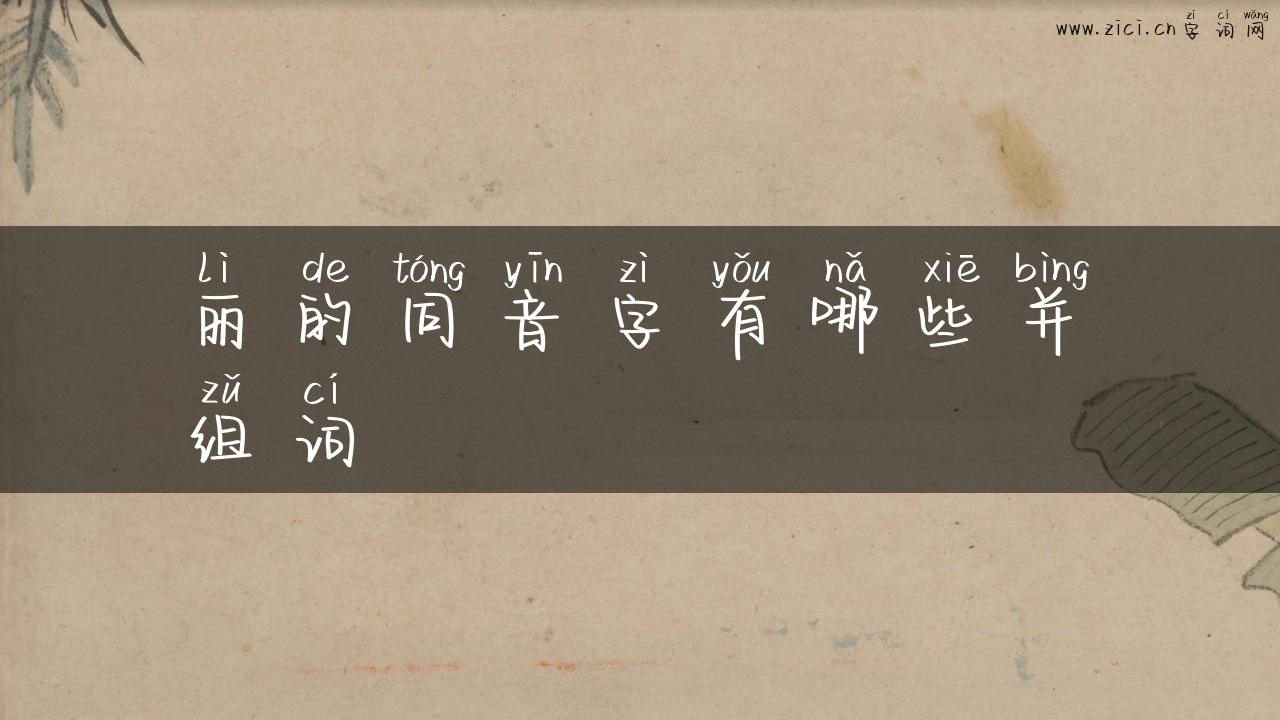 zì cí wǎng
www.zici.cn 字 词 网
lì de tóng yīn zì yǒu nǎ xiē bìng
丽 的 同 音 字 有 哪 些 并
zǔ cí
组 词